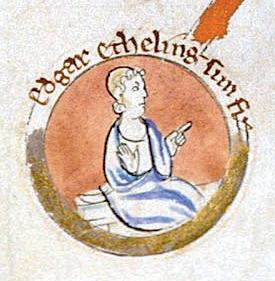 Edgar etheling sun fiz